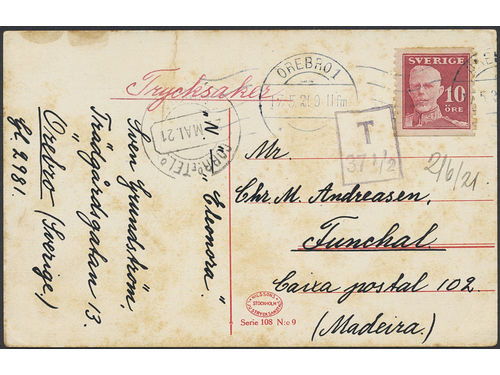 Trycksaker
ÖREBRO 1
17.5.21.9-11 fm
SVERIGE
10
ÖRE
CORRº E TELº
MAI. 21
T
37 1/2
2/6/21
Mr.
Chr. M. Andreasen,
Funchal.
Caixa postal 102.
(Madeira.)
"N" "Eleonora".
Sven Grundström,
Trädgårdsgatan 13.
Örebro (Sverige.)
Gl. 2981.
NILSSONS
STOCKHOLM
Serie 108 N:o 9